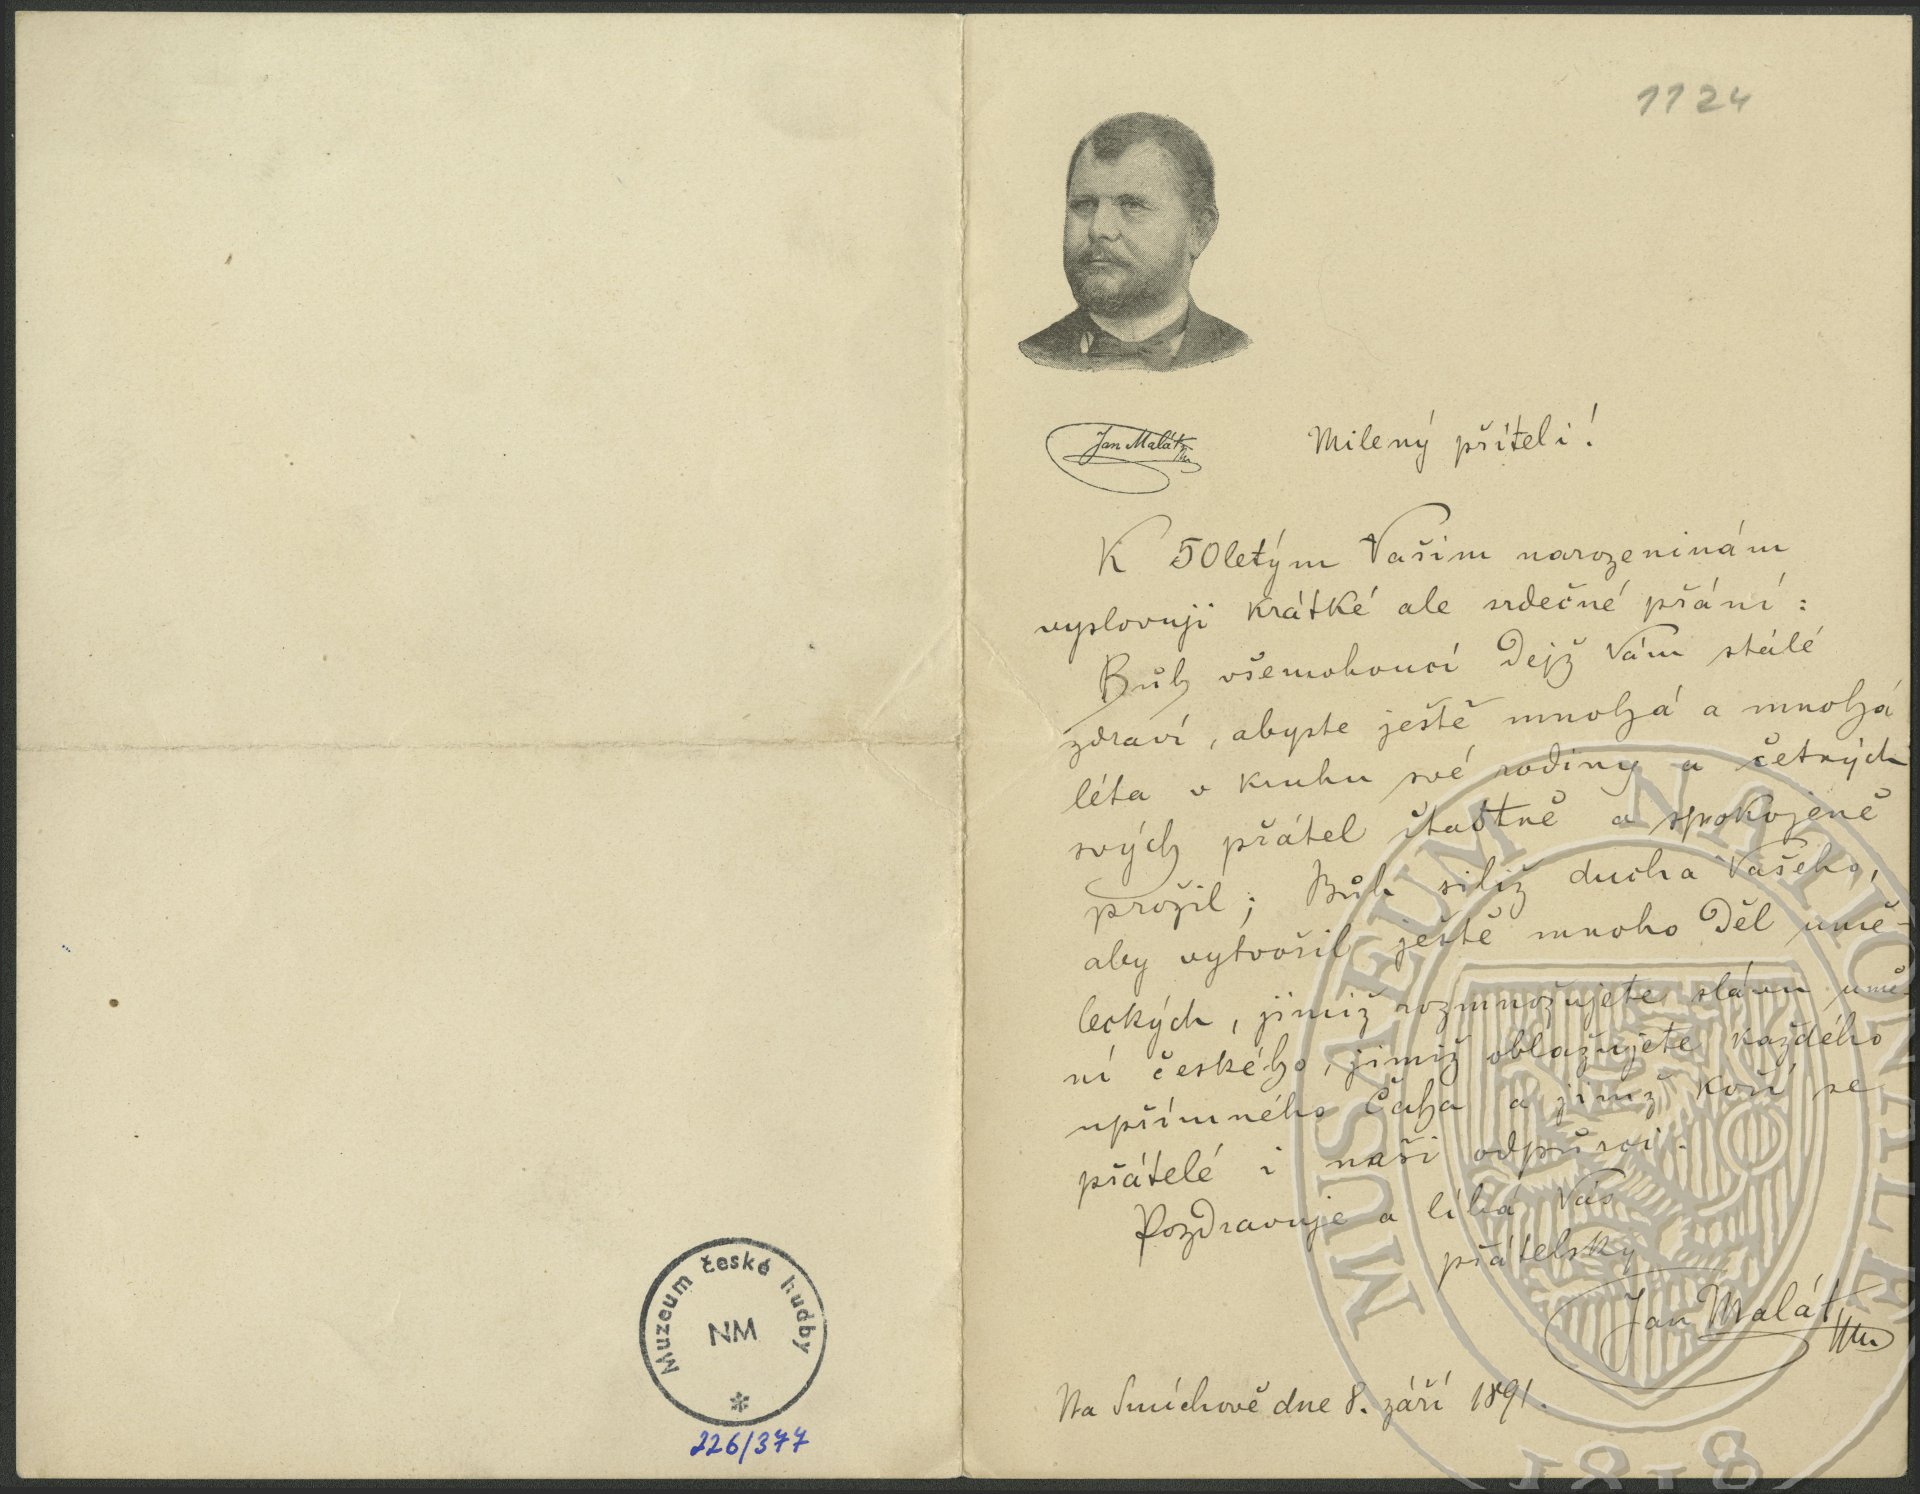 Muzeum české hudby
NM
226/377
1124
Jan Malát
Milený příteli!
K 50letým Vašim narozeninám
vyslovuji krátké ale srdečné přání:
Bůh všemohoucí Dejž Vám stálé
zdraví, abyste ještě mnohá a mnohá
léta v kruhu své rodiny a četných
svých přátel šťastně a spokojeně
prožil; Bůh siliž ducha Vašeho,
aby vytvořil ještě mnoho Děl umě-
leckých, jimiž rozmnožujete slávu umě-
ní českého, jimiž oblažujete každého
upřímného Čecha a jimž koří se
přátelé i naši odpůrci.
Pozdravuje a líbá Vás
přátelsky
Jan Malát
Na Smíchově dne 8. září 1891.
MUSAEUM NATIONALE
1818